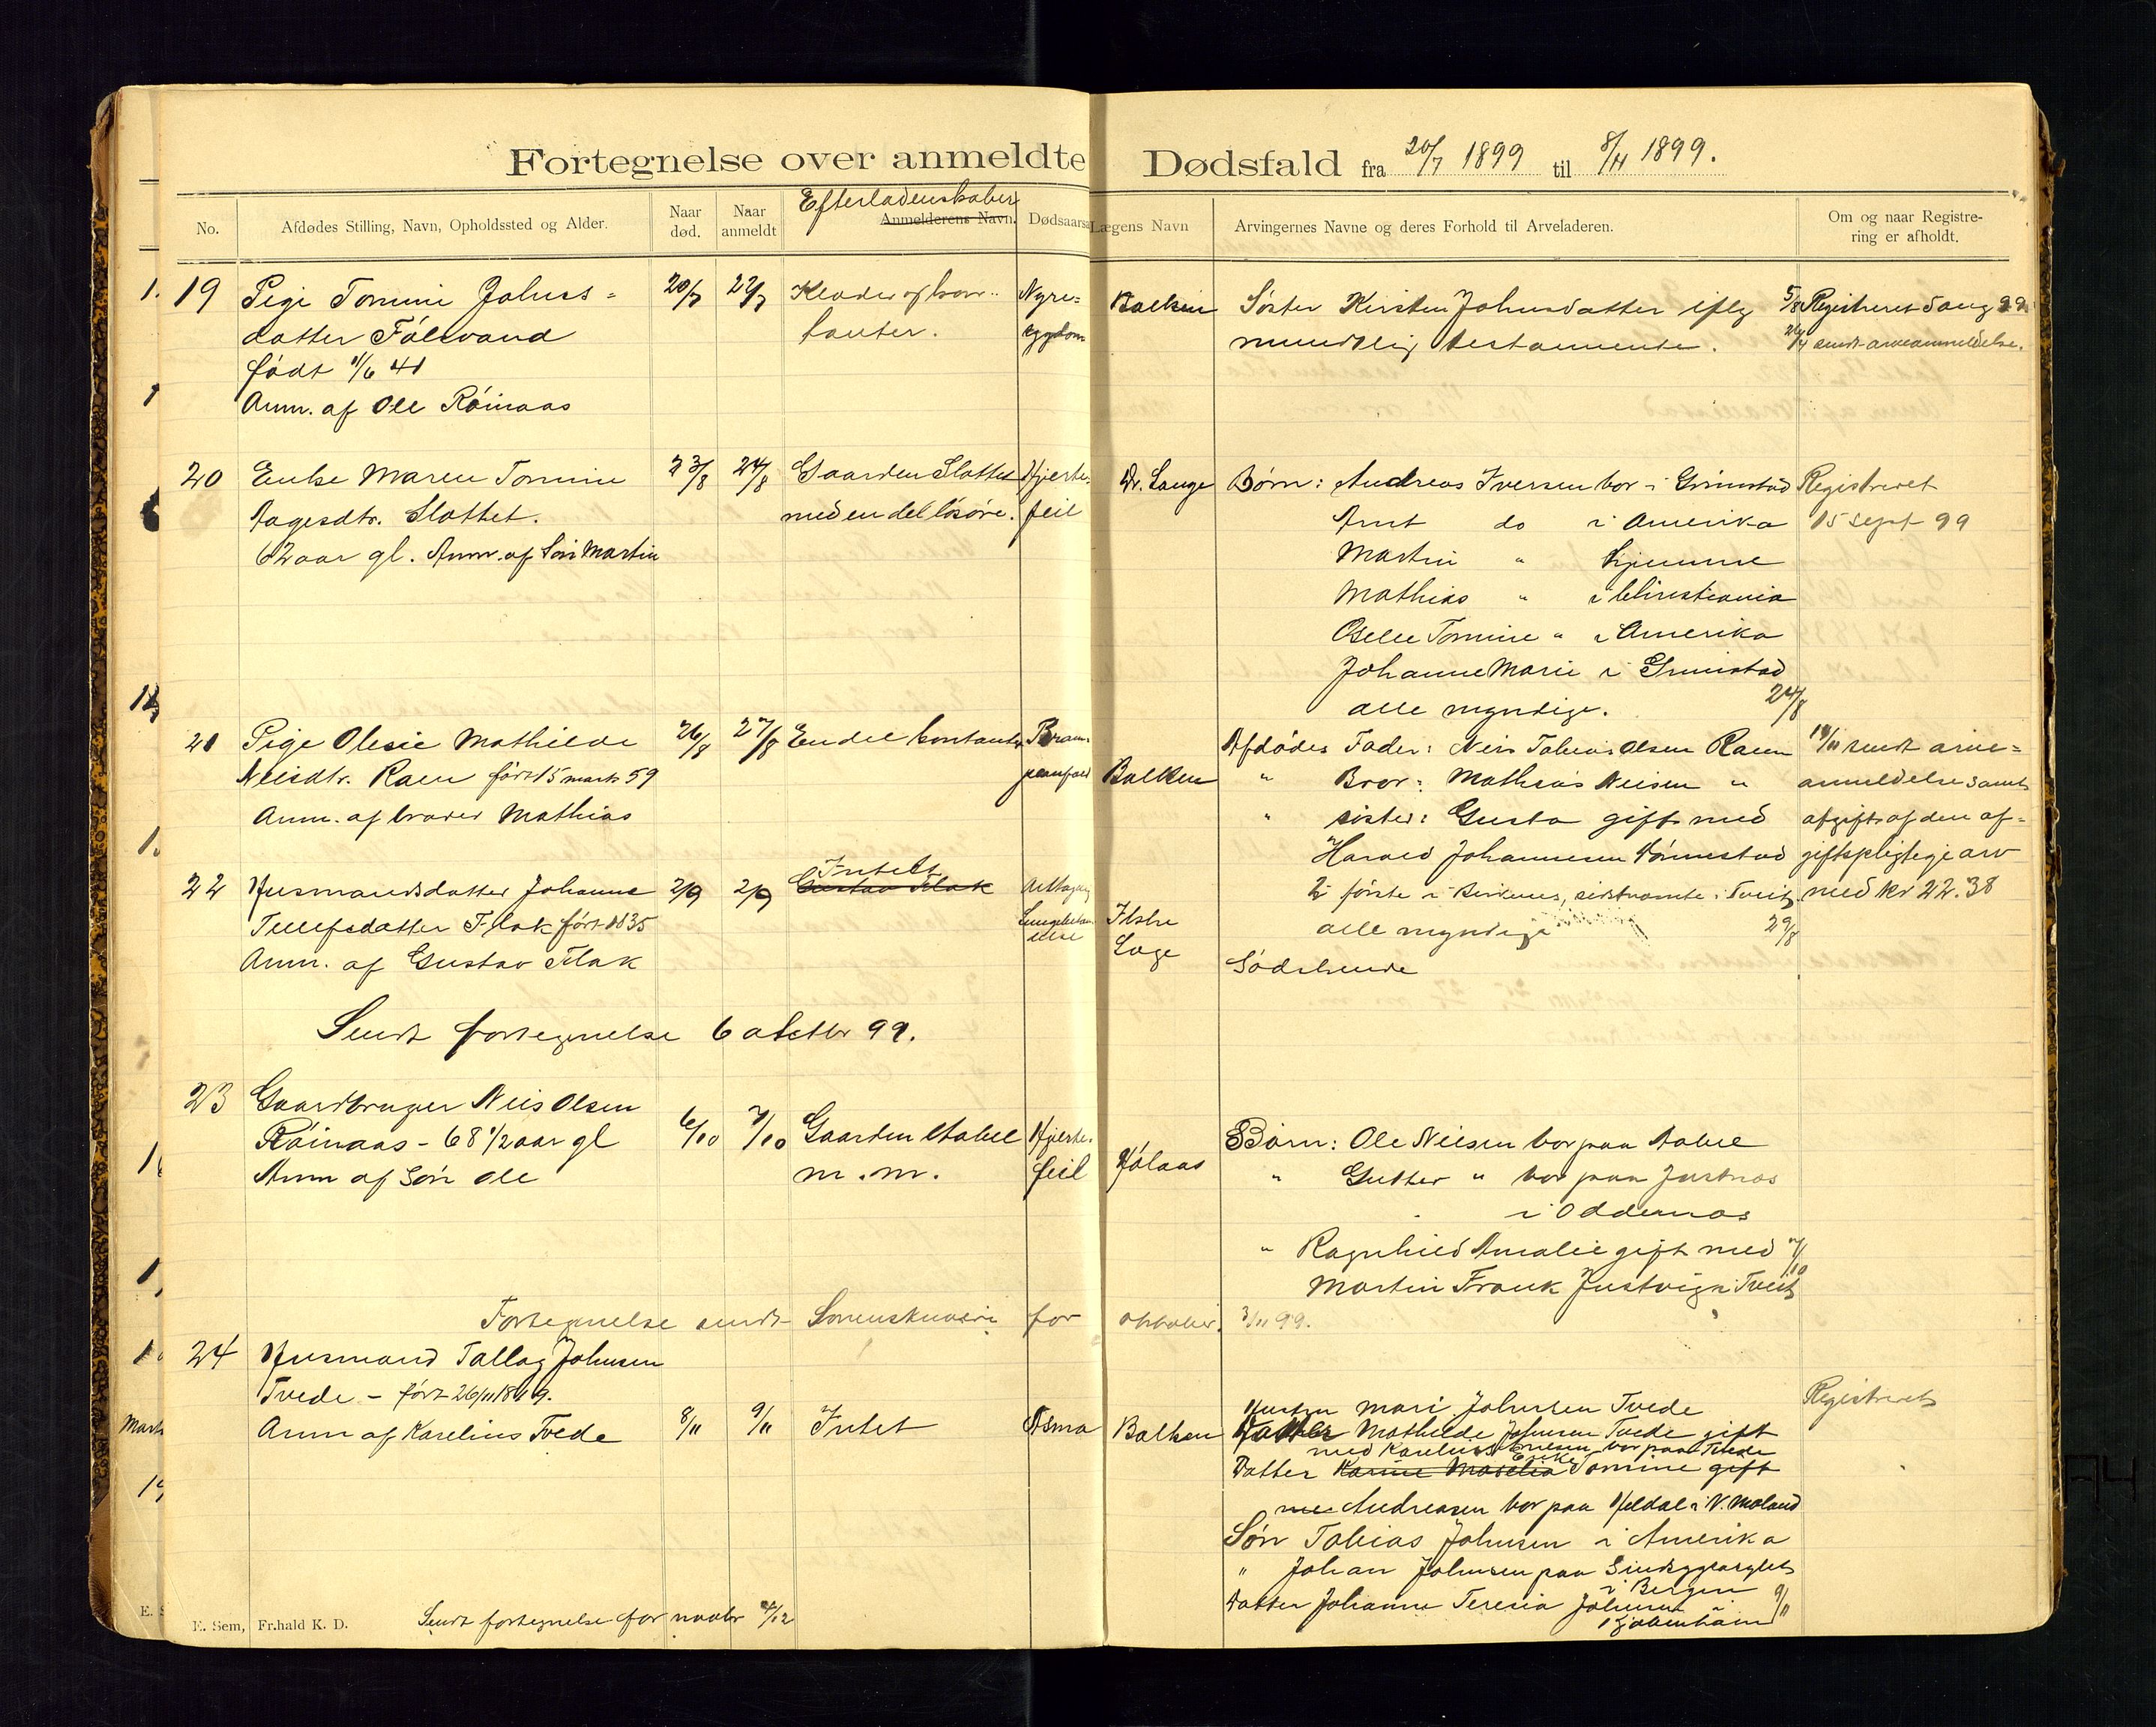 Fortegnelse over anmeldte Dødsfald fra 20/7 1899 til 8/11 1899.
No.
Afdødes Stilling, Navn, Opholdssted og Alder.
Naar død.
Naar anmeldt
Efterladenskaber
Anmelderens Navn.
Dødsaarsa
Lægens Navn
Arvingernes Navne og deres Forhold til Arveladeren.
Om og naar Registre-
ring er afholdt.
19 Pige Tomine Johns-
datter Fólevand
født 11/6 41
Anm. af Ole Róinaas
20/7 22/7
Klæder og kon-
tanter.
Nyre-
sygdom
Balken
Søster Kirsten Johnsdatter iflg
mundtlig testamente.
5/8 Registreret 5 aug 99
sendt arveanmeldelse.
20 Enke Maren Tomine
Aagesdtr. Slottet.
62 aar gl. Anm. af Søn Martin
23/8 24/8
Gaarden Slottet
med en del løsøre.
Hjerte-
feil
Dr. Lange
Børn: Andreas Iversen bor i Grimstad
Arnt do i Amerika
Martin " hjemme
Mathias " i Christiania
Oselie Tomine " i Amerika
Johanne Marie i Grimstad
alle myndige. 24/8
Registreret
15 sept 99
21 Pige Olesie Mathilde
Neisdtr. Raen født 15 marts 59
Anm. af broder Mathias
26/8 27/8
En del kontanter
Balken
Afdødes Fader: Neis Tobias Olsen Raen
" Bror: Mathias Neisen "
" sister: Gusta gift med
Harald Johannesen Dónnestad
2 første i Birkenes, sistnævnte i Tveit
alle myndige 29/8
sendt arve-
anmeldelse samt
afgift af den af-
giftspligtige arv
med kr 22.38
22 Husmandsdatter Johanne
Tellefsdatter Flak født 1835
Anm. af Gustav Flak
2/9 2/9
Intet
Gustav Flak
Ilske
Lage
Sødskende
Sendt fortegnelse 6 oktbr 99.
23 Gaardbruger Neis Olsen
Róinaas - 68 1/2 aar gl
Anm af Søn Ole
6/10 7/10
Gaarden Aabel
m.m.
Hjerte-
feil
Hólaas
Børn: Ole Neisen bor paa Aabel
" Gutter " bor paa Justnæs
i Oddernæs
" Ragnhild Amalie gift med 7/10
Martin Frank Justvig i Tveit
Fortegnelse sendt Sorenskriveri for oktober. 3/11 99.
24 Husmand Tallag Johnsen
Tvede - født 26/11 1819.
Anm af Karelius Tvede
8/11 9/11
Intet
Asma
Balken
Hustru Mari Johnsen Tvede
Datter Mathilde Johnsen Tvede gift
med Karelius bor paa Tvede
Enke
Datter Karine Maselia Tomine gift
me Andreasen bor paa Heldal i V. Moland
Søn Tobias Johnsen i Amerika
" Johan Johnsen paa Sindsygeasylet
i Bergen
Datter Johanne Teresia Johnsen 9/11
Kjøbenhavn
Registreret
E. Sem, Fr.hald K. D.
Sendt fortegnelse for novbr